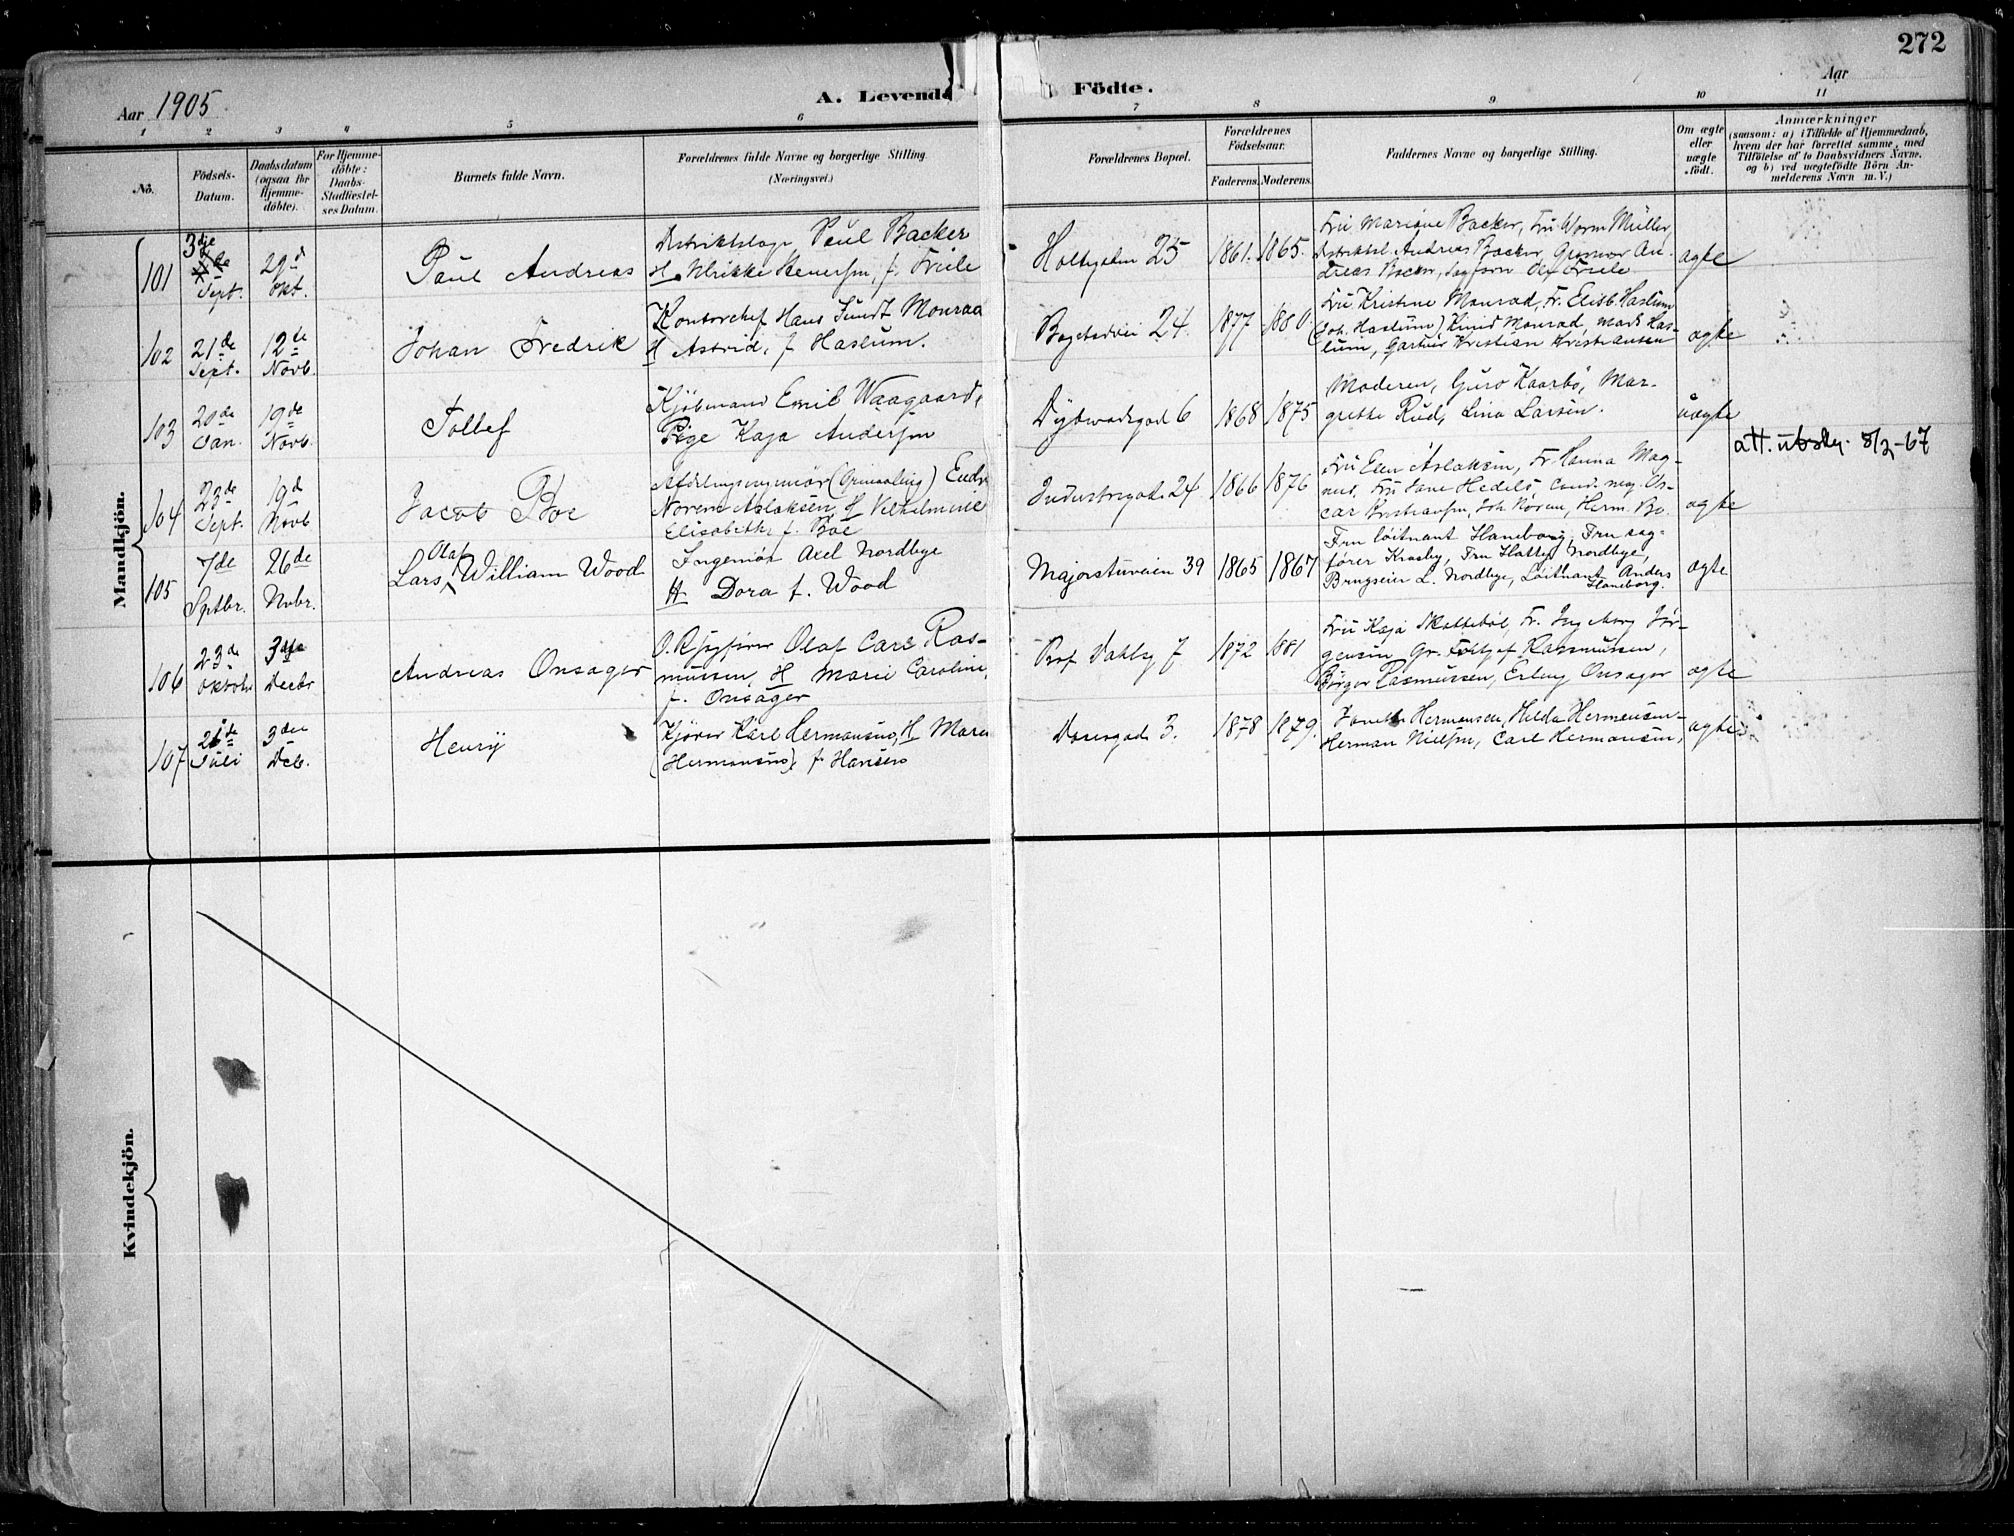 272
Aar 1905
A. Levende Födte.
Aar
1 2 3 4 5 6 7 8 9 10 11
No.
Födsels-
Datum.
Daabsdatum
(ogsaa for
Hjemme-
döbte).
For Hjemme-
döbte:
Daabs-
Stadfæstel-
ses Datum.
Barnets fulde Navn.
Forældrenes fulde Navne og borgerlige Stilling
(Næringsvei.)
Forældrenes Bopæl.
Forældrenes
Födselsaar.
Faderens. Moderens.
Faddernes Navne og borgerlige Stilling.
Om ægte
eller
uægte
födt.
Anmærkninger
(saasom: a) i Tilfælde af Hjemmedaab,
hvem der har forrettet samme, med
Tilföielse af to Daabsvidners Navne,
og b) ved uægtefödte Börn An-
melderens Navn m. V.)
Mandkjön.
101
3dje
Sept.
29d
Okt.
Paul Andreas
Paul Backer
H Ulrikke f. Friele
25
1861. 1865.
Fru Mariane Backer, Fru Worm Müller,
Andreas Backer, Gunvor An-
dreas Backer, Friele
ægte
102
21de
Sept.
12de
Novb.
Johan Fredrik
Kontorchef Hans Sundt Monrad
H Astrid, f. Haslum.
24
1877 1880
Fru Kristine Monrad, Fr. Elisb. Haslum
(Joh. Haslum) Knud Monrad, Mads Has-
lum, Gartner Kristian Kristiansen
ægte
103
20de
Jan.
19de
Novb.
Tollef
Kjöbmand Emil Waagaard,
Pige Kaja Andersen
Dybwadsgad 6
1868 1875
Moderen, Guro Kaarbö, Mar-
grethe Rud, Lina Larsen.
uægte
att. utsty. 8/2-67
104
23de
Sept.
19d
Novb
Jacob Boe
Afdelingsingeniör (Opmaaling)
Norem Aslaksen, H Vilhelmine
Elisabeth, f. Böe
Industrigade 24
1866 1876
Fru Elen Aslaksen, Fr. Hanna Mag-
nus, Fru Jane
car Kristiansen, Joh Noren, Herm. Bö.
ægte
105
7de
Sptbr.
26de
Nvbr.
Olaf
Lars, William Wood
Ingeniör Axel Nordbye
H Dora f. Wood
Majorstuveien 39
1865 1867
Fru löitnant Haneborg, Fru sag-
förer Kraby, Fru Hatty Nordbye,
Brugseier L. Nordbye, Löitnant Anders
Haneborg.
ægte
106
23de
Oktobr
3dje
Decbr
Andreas Onsager
O. R. sagförer Olaf Carl Ras-
mussen, H Marie Caroline,
f. Onsager
Prof Dahlsg 7
1872 1881
Fru Kaja Skotteböl, Fr. Ingeborg Jör-
gensen, Gr. Rasmussen,
Birger Rasmussen, Erling Onsager
ægte
107
21de
Juli
3die
Dcb.
Henry
Kjörer Karl Hermansen, H Maren
(Hermansen), f. Hansen
3.
1878 1879.
Hermansen, Hilda Hermansen
Herman Nielsen, Carl Hermansen,
ægte
Kvindekjön.